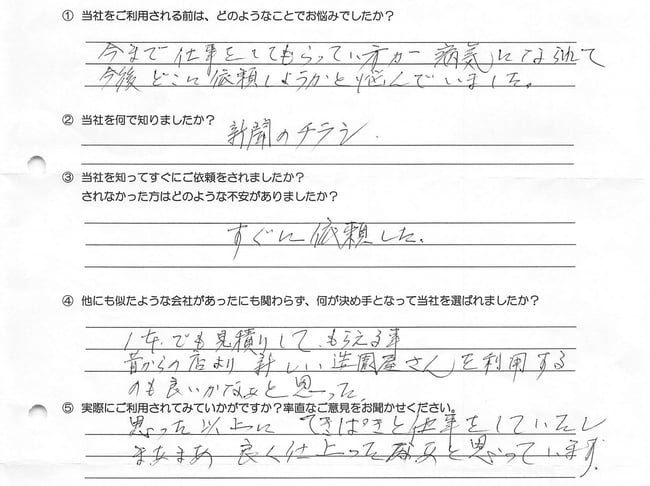 ① 当社をご利用される前は、どのようなことでお悩みでしたか？
今まで仕事をしてもらってい方が病気になられて
今後どこに依頼しようかと悩んでいました。
② 当社を何で知りましたか？
新聞のチラシ.
③ 当社を知ってすぐにご依頼をされましたか？
されなかった方はどのような不安がありましたか？
すぐに依頼した.
④ 他にも似たような会社があったにも関わらず、何が決め手となって当社を選ばれましたか？
1本でも見積りして、もらえる事
昔からの店より新しい造園屋さんを利用する
のも良いかなぁと思った
⑤ 実際にご利用されてみていかがですか？率直なご意見をお聞かせください。
思った以上にてきぱきと仕事をしていたし
まあまあ良く仕上ったなぁと思っています.